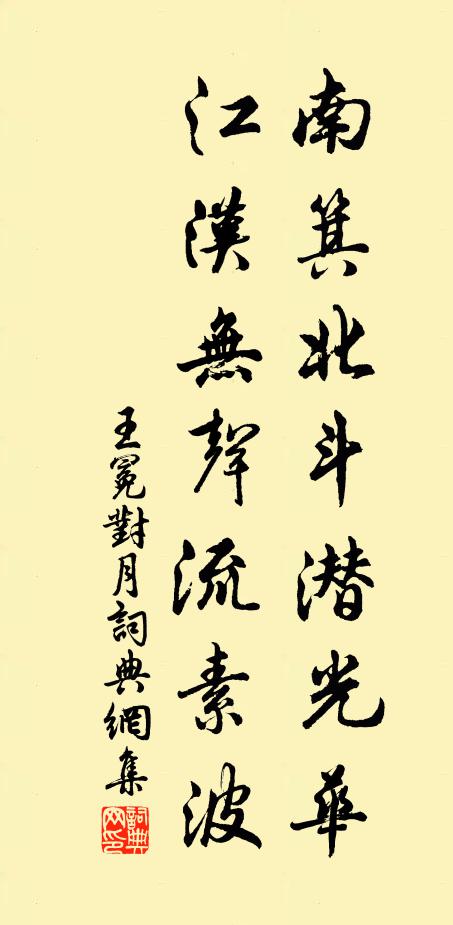 南箕北斗潜光華
江漢無聲流素波
王冕對月詞典網集
詞典網印